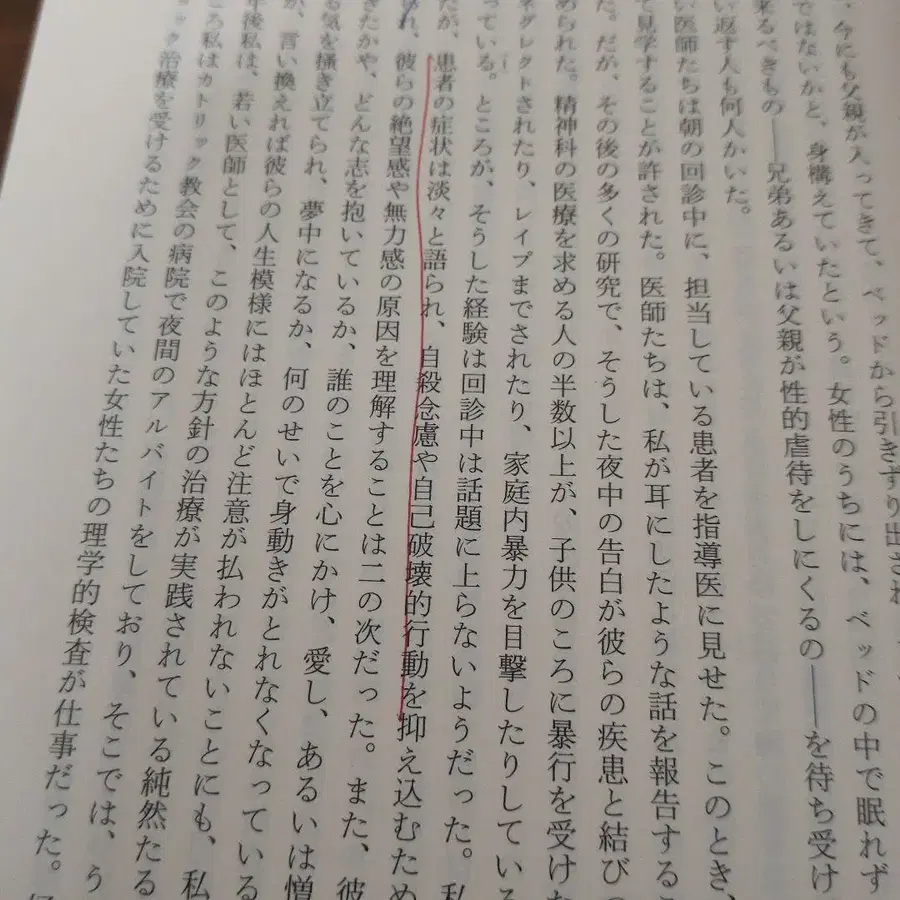 今にも父親が入ってきて、ベッドから引きずり出され
ではないかと、身構えていたという。女性のうちには、ベッドの中で眠れず
来るべきもの――兄弟あるいは父親が性的虐待をしにくるの――を待ち受け
返す人も何人かいた。
い医師たちは朝の回診中に、担当している患者を指導医に見せた。このとき、
て見学することが許された。医師たちは、私が耳にしたような話を報告するこ
た。だが、その後の多くの研究で、そうした夜中の告白が彼らの疾患と結びつ
められた。精神科の医療を求める人の半数以上が、子供のころに暴行を受けた
ネグレクトされたり、レイプまでされたり、家庭内暴力を目撃したりしている
っている。ところが、そうした経験は回診中は話題に上らないようだった。私
だが、患者の症状は淡々と語られ、自殺念慮や自己破壊的行動を抑え込むため
れ、彼らの絶望感や無力感の原因を理解することは二の次だった。また、彼
きたかや、どんな志を抱いているか、誰のことを心にかけ、愛し、あるいは憎
る気を掻き立てられ、夢中になるか、何のせいで身動きがとれなくなっている
か、言い換えれば彼らの人生模様にはほとんど注意が払われないことにも、私
年後私は、若い医師として、このような方針の治療が実践されている純然たる
ころ私はカトリック教会の病院で夜間のアルバイトをしており、そこでは、う
ック治療を受けるために入院していた女性たちの理学的検査が仕事だった。